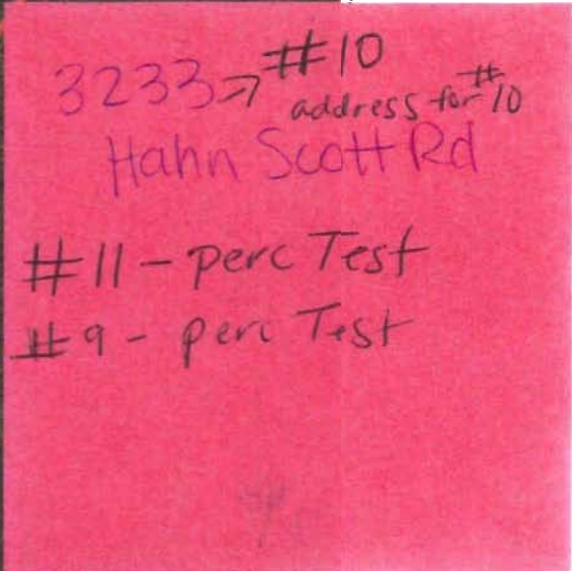 3233 → #10
address for #10
Hahn Scott Rd
#11 - perc Test
#9 - perc Test